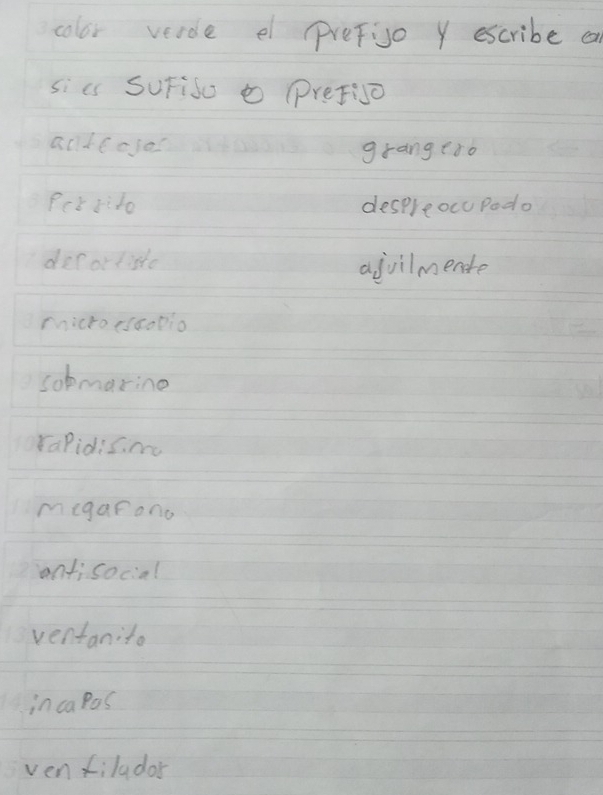 color verde el prefijo y escribe
si es Sufijo o prefijo
anteojos grangero
Perrito despreocupado
deportista ajuilmente
microescopio
submarino
rapidismo
megafono
antisocial
ventanita
incapas
ventilador